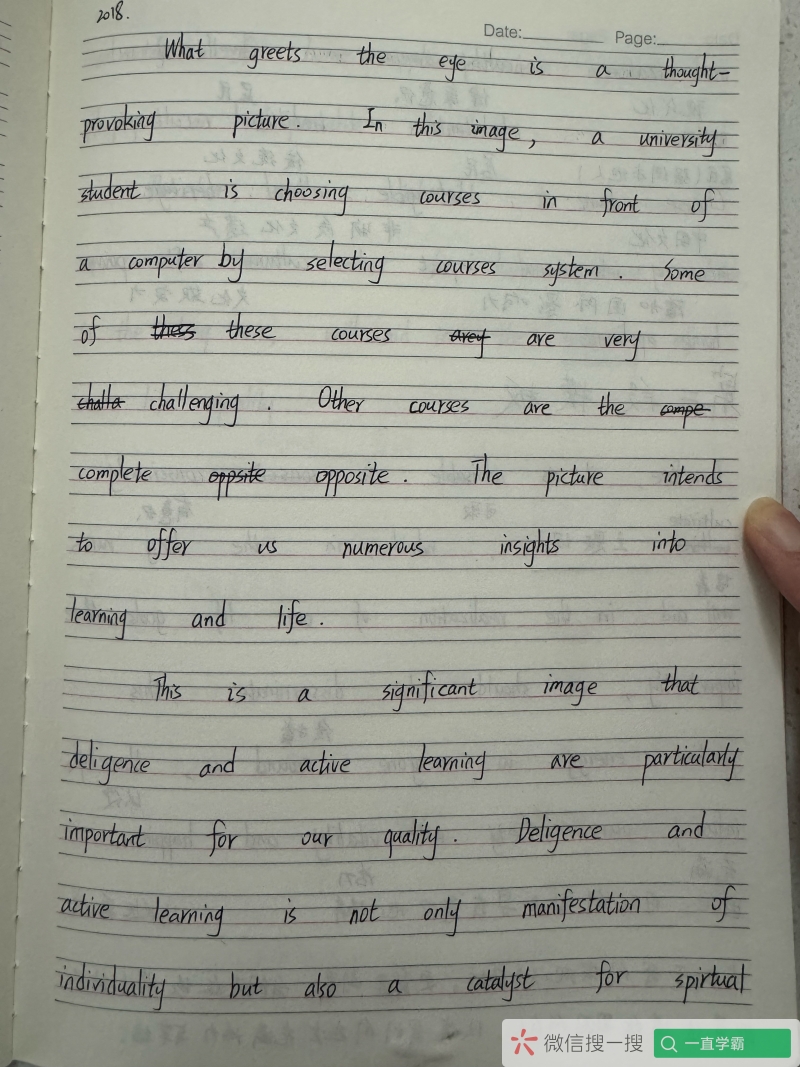 2018.
Date: Page:
What greets the eye is a thought-
provoking picture. In this image, a university
student is choosing courses in front of
a computer by selecting courses system. Some
of thess these courses arey are very
challa challenging. Other courses are the compe
complete oppsite opposite. The picture intends
to offer us numerous insights into
learning and life.
This is a significant image that
deligence and active learning are particularly
important for our quality. Deligence and
active learning is not only manifestation of
individuality but also a catalyst for spirtual
微信搜一搜 一直学霸